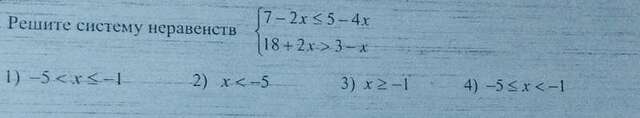 Решите систему неравенств { 7 – 2x ≤ 5 – 4x
18 + 2x > 3 – x
1) –5 < x ≤ –1 2) x < –5 3) x ≥ –1 4) –5 ≤ x < –1